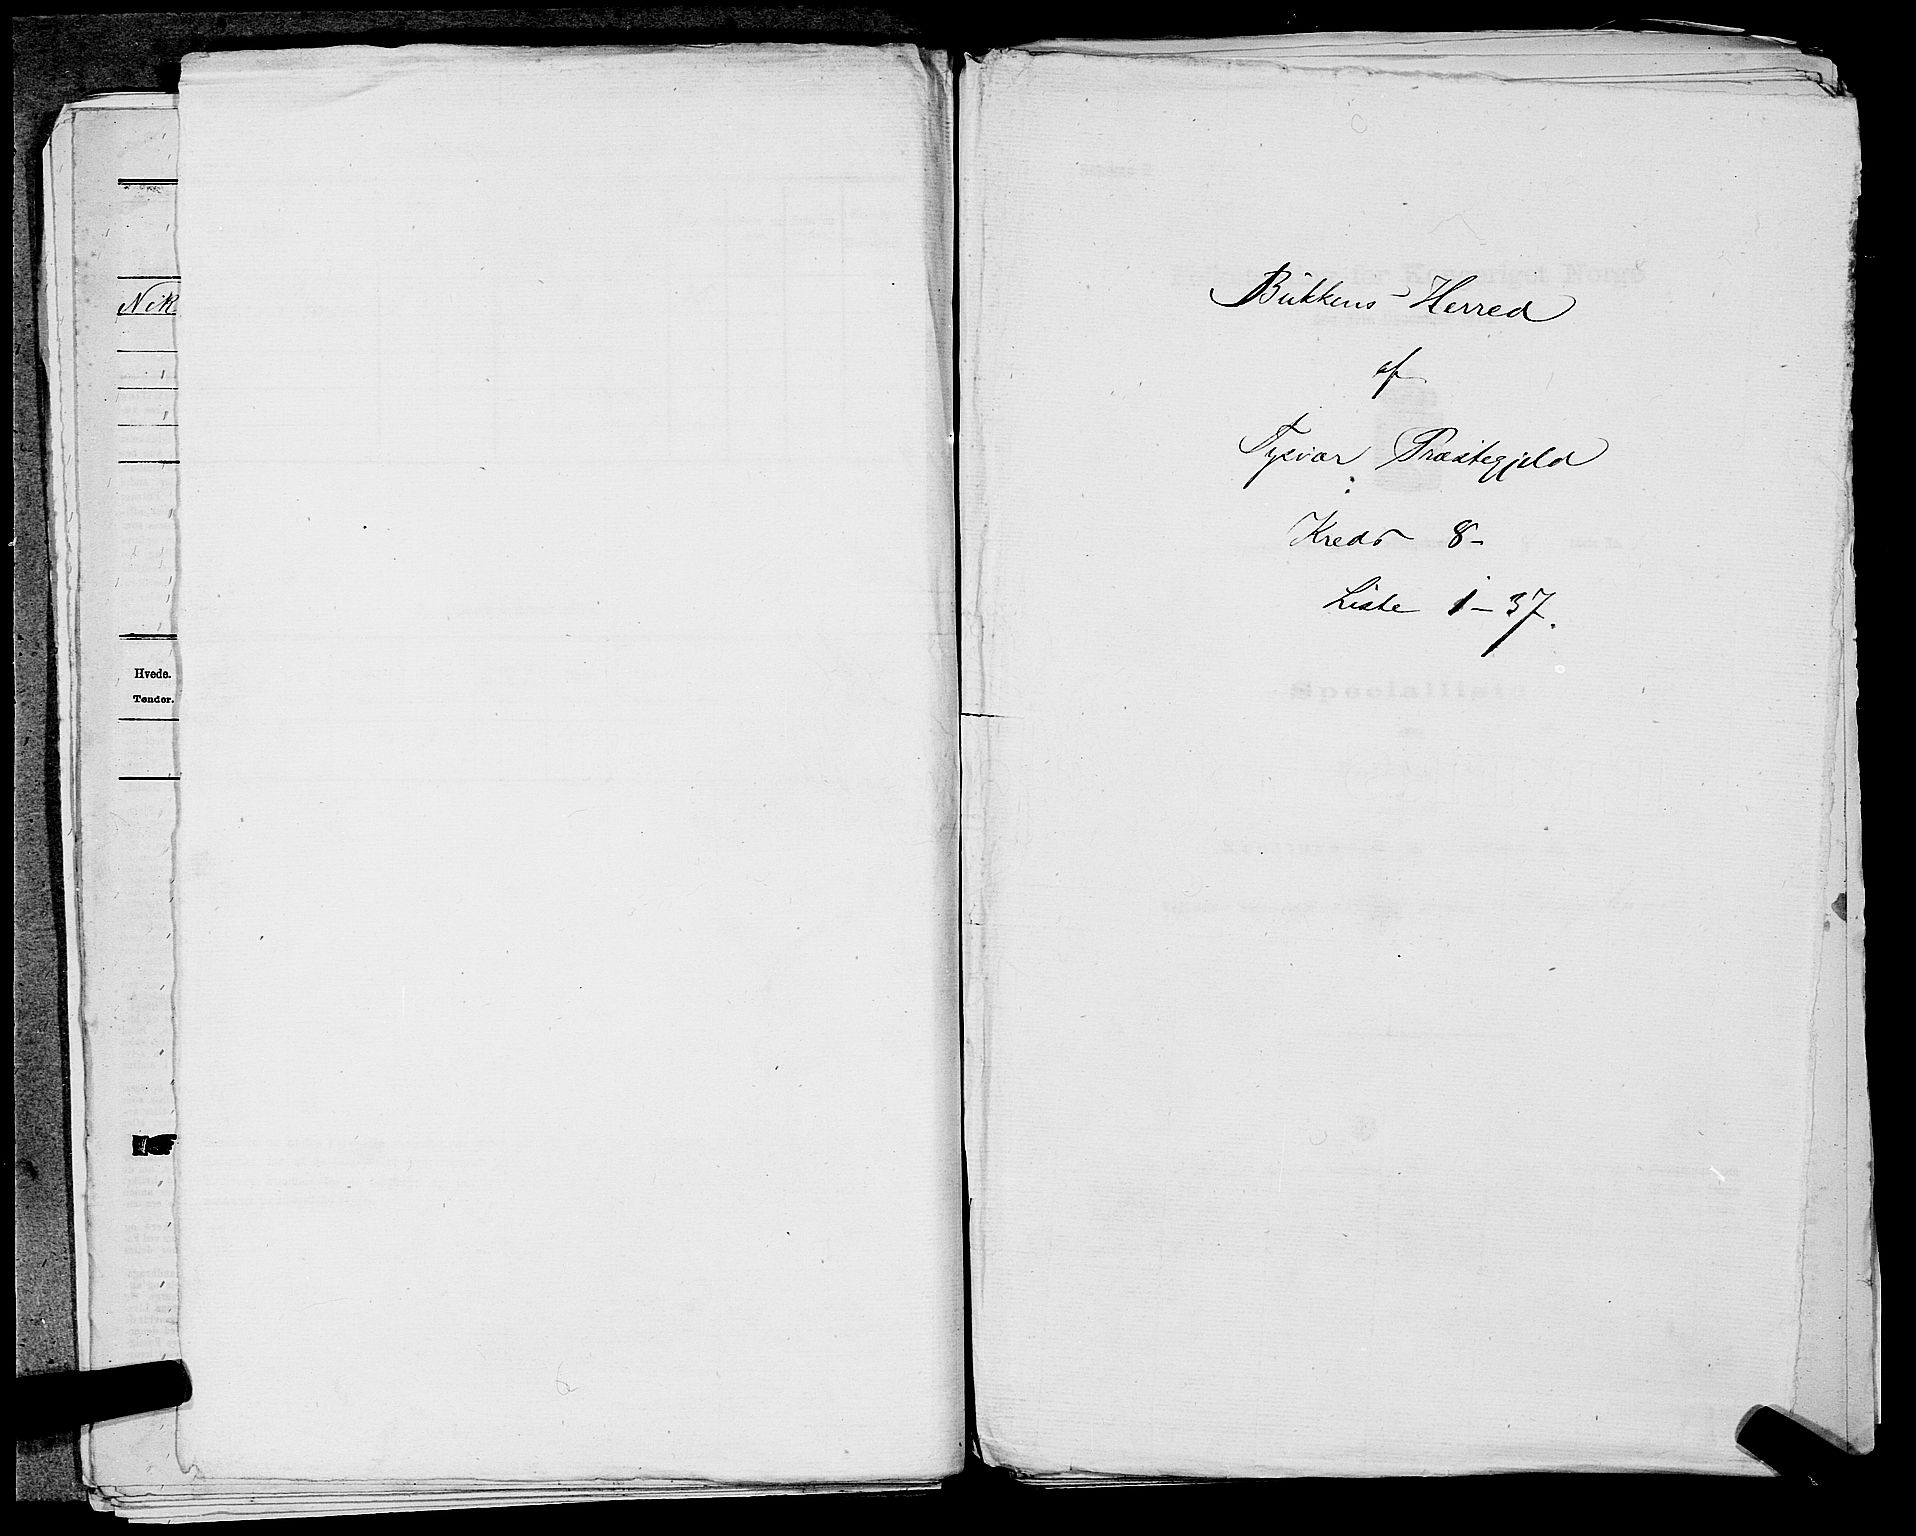 Nik
Hvede.
Tønder.
Bukkens - Herred
af
Tysvær Præstegjeld
Kreds 8 -
Liste 1 - 37.
Specialliste